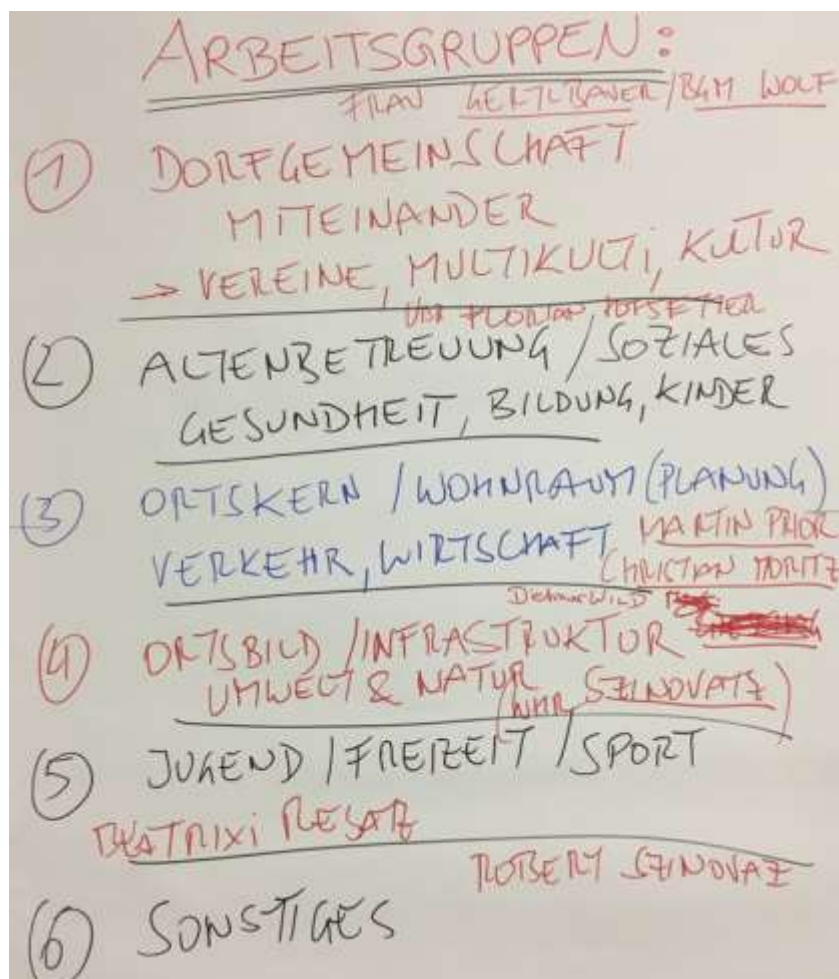 ARBEITSGRUPPEN:
FRAU GERTLBAUER/BGM WOLF
① DORFGEMEINSCHAFT
MITEINANDER
→ VEREINE, MULTIKULTI, KULTUR
FLORIAN HOFSTETTER
② ALTENBETREUUNG / SOZIALES
GESUNDHEIT, BILDUNG, KINDER
③ ORTSKERN / WOHNRAUM (PLANUNG)
VERKEHR, WIRTSCHAFT MARTIN PRIOR
CHRISTIAN MORITZ
Dietmar WILD
④ ORTSBILD / INFRASTRUKTUR
UMWELT & NATUR
SZINOVATZ)
⑤ JUGEND / FREIZEIT / SPORT
BEATRIXI RESATZ
ROBERT SZINOVAZ
⑥ SONSTIGES